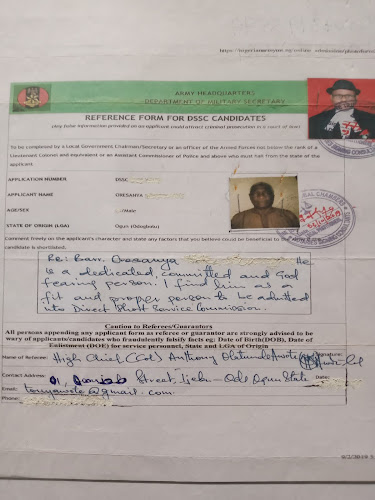 ARMY HEADQUARTERS
DEPARTMENT OF MILITARY SECRETARY
REFERENCE FORM FOR DSSC CANDIDATES
(Any false information provided on an applicant could attract criminal prosecution in a court of law)
To be completed by a Local Government Chairman/Secretary or an officer of the Armed Forces not below the rank of a
Lieutenant Colonel and equivalent or an Assistant Commissioner of Police and above who must hail from the state of the
applicant.
APPLICATION NUMBER DSSC
APPLICANT NAME ORESANYA
AGE/SEX /Male
STATE OF ORIGIN (LGA) Ogun (Odogbolu)
Comment freely on the applicant's character and state any factors that you believe could be beneficial to the
candidate is shortlisted.
Re: Barr. Oresanya He
is a dedicated, committed and God
fearing person. I find him as a
fit and proper person to be admitted
into Direct Short Service Commission.
Caution to Referees/Guarantors
All persons appending any applicant form as referee or guarantor are strongly advised to be
wary of applicants/candidates who fraudulently falsify facts eg: Date of Birth(DOB), Date of
Enlistment (DOE) for service personnel, State and LGA of Origin
Name of Referee: High Chief (Col) Anthony Olatunde Signature:
Contact Address: Street, Ijebu-Ode Ogun State Date:
Email: @gmail.com
Phone: